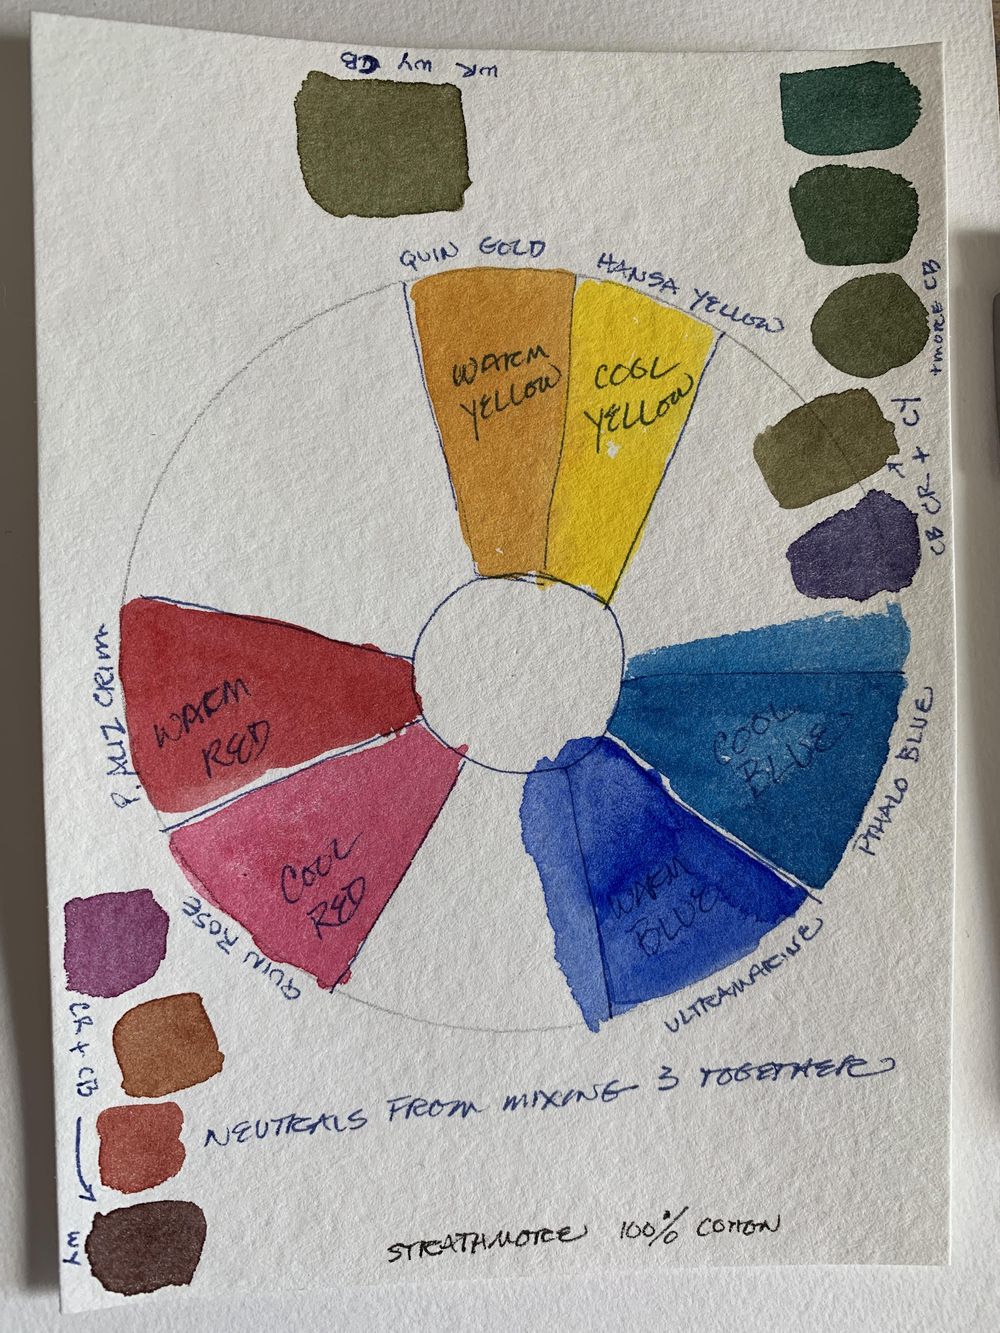 WR WY CB
QUIN GOLD
HANSA YELLOW
WARM
YELLOW
COOL
YELLOW
+MORE CB
CB CR + CY
P. ALIZ CRIM
WARM
RED
COOL
BLUE
PTHALO BLUE
COOL
RED
QUIN ROSE
WARM
BLUE
ULTRAMARINE
CR + CB
WY
NEUTRALS FROM MIXING 3 TOGETHER
STRATHMORE 100% COTTON